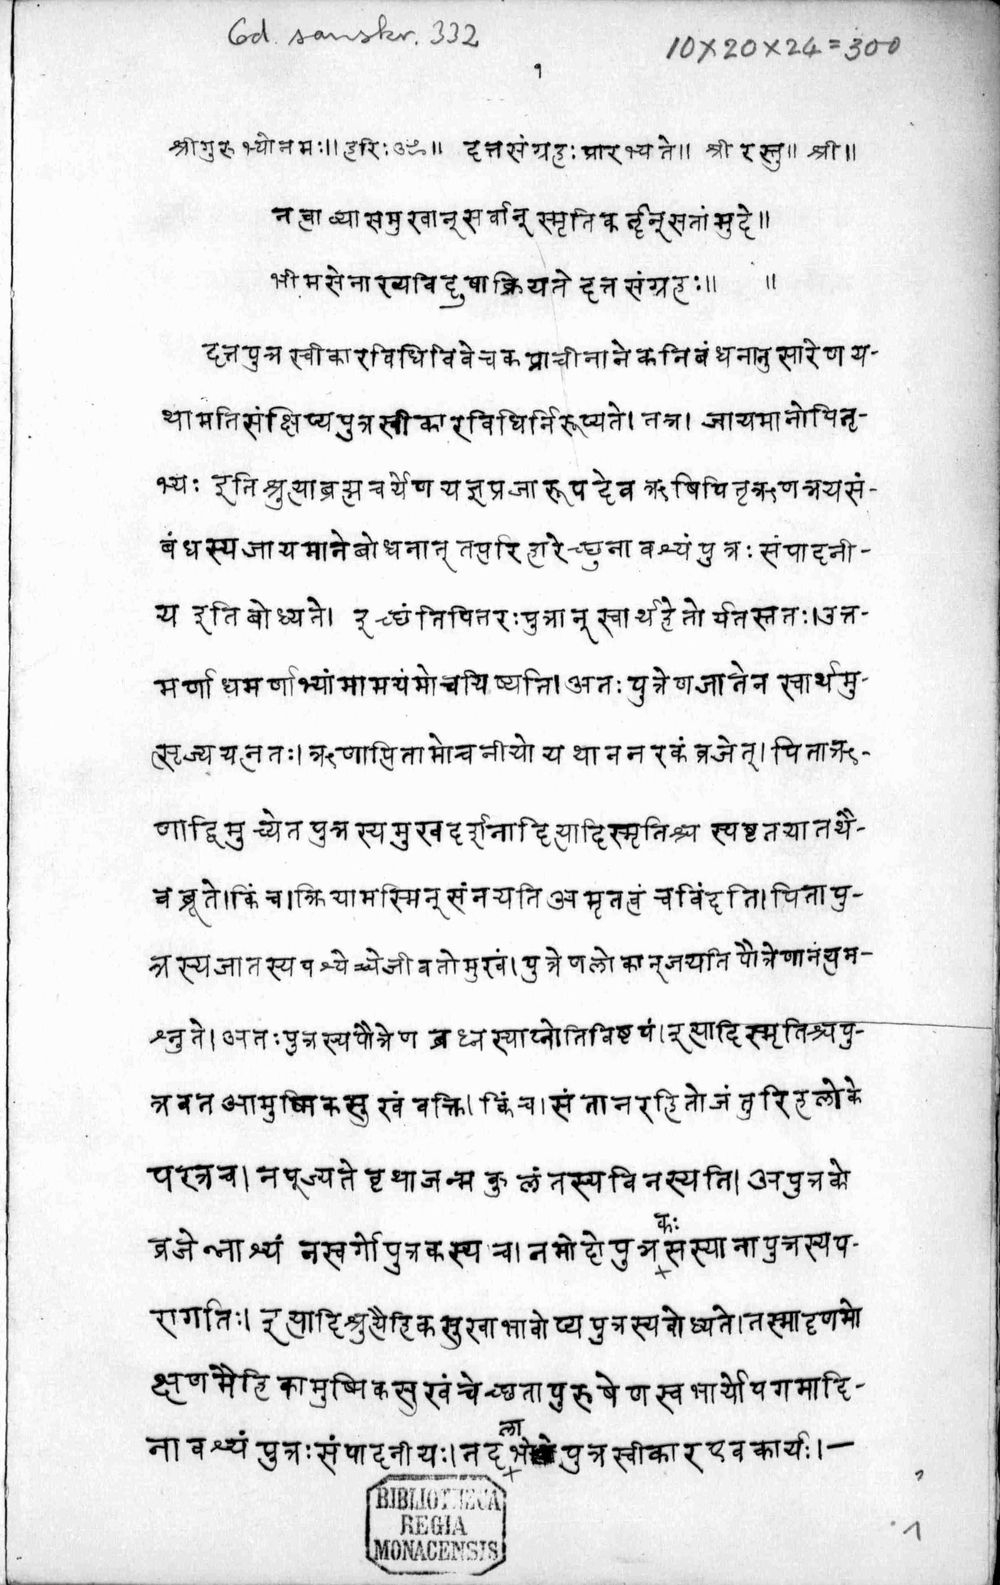 Cod. sanskr. 332
10×20×24=300
१
श्रीगुरुभ्योनमः॥हरिःॐ॥ दत्तसंग्रहःप्रारभ्यते॥ श्रीरस्तु॥ श्री॥
नत्वाव्यासमुखान्सर्वान्स्मृतिकर्तॄन्सतांमुदे॥
भीमसेनाख्यविदुषाक्रियतेदत्तसंग्रहः॥ ॥
दत्तपुत्रस्वीकारविधिविवेचकप्राचीनानेकनिबंधनानुसारेणय-
थामतिसंक्षिप्यपुत्रस्वीकारविधिर्निरूप्यते।तत्र।जायमानोपितृ-
भ्यः इतिश्रुत्याब्रह्मचर्येणयज्ञप्रजारूपदेवऋषिपितृऋणत्रयसं-
बंधस्यजायमानेबोधनात्तत्परिहारेच्छुनावश्यंपुत्रःसंपादनी-
यइतिबोध्यते। इच्छंतिपितरःपुत्रान्स्वार्थहेतोर्यतस्ततः।उत्त-
मर्णाधमर्णाभ्यांमामयंमोचयिष्यति।अतःपुत्रेणजातेनस्वार्थमु-
त्सृज्ययत्नतः।ऋणात्पितामोचनीयोयथाननरकंव्रजेत्।पिताऋ-
णाद्विमुच्येतपुत्रस्यमुखदर्शनादित्यादिस्मृतिश्चस्पष्टतयातथै-
वब्रूते।किंच।क्रियामस्मिन्संनयतिअमृतत्वंचविंदति।पितापु-
त्रस्यजातस्यपश्येच्चेज्जीवतोमुखं।पुत्रेणलोकान्जयतिपौत्रेणानंत्यम-
श्नुते।अतःपुत्रस्यपौत्रेणब्रध्नस्याप्नोतिविष्टपं।इत्यादिस्मृतिश्चपु-
त्रवतआमुष्मिकसुखंवक्ति।किंच।संतानरहितोजंतुरिहलोके
परत्रच।नपूज्यतेवृथाजन्मकुलंतस्यविनस्यति।अपुत्रको
व्रजेन्नाश्यं नस्वर्गोपुत्रकस्यच।नमोदोपुत्रकःसस्यानापुत्रस्यप-
रागतिः।इत्यादिश्रुत्यैहिकसुखाभावोप्यपुत्रस्यबोध्यते।तस्मादृणमो
क्षणमैहिकामुष्मिकसुखंचेच्छतापुरुषेणस्वभार्योपगमादि-
नावश्यंपुत्रःसंपादनीयः।तदलाभेपुत्रस्वीकारएवकार्यः।—
BIBLIOTHECA
REGIA
MONACENSIS
1